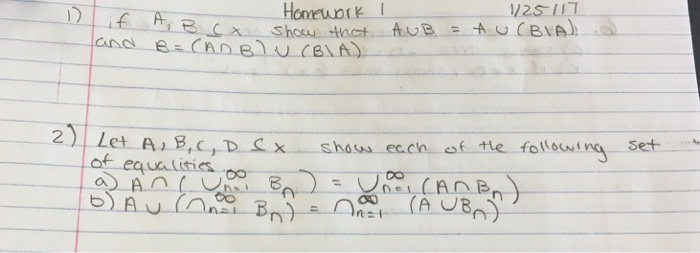 Homework 1 1/25/17
1) if A, B ⊆ X show that A∪B = A∪(B\A)
and B=(A∩B)∪(B\A)
2) Let A, B, C, D ⊆ X show each of the following set
of equalities.
a) A∩(∪_{n=1}^∞ B_n) = ∪_{n=1}^∞ (A∩B_n)
b) A∪(∩_{n=1}^∞ B_n) = ∩_{n=1}^∞ (A∪B_n)